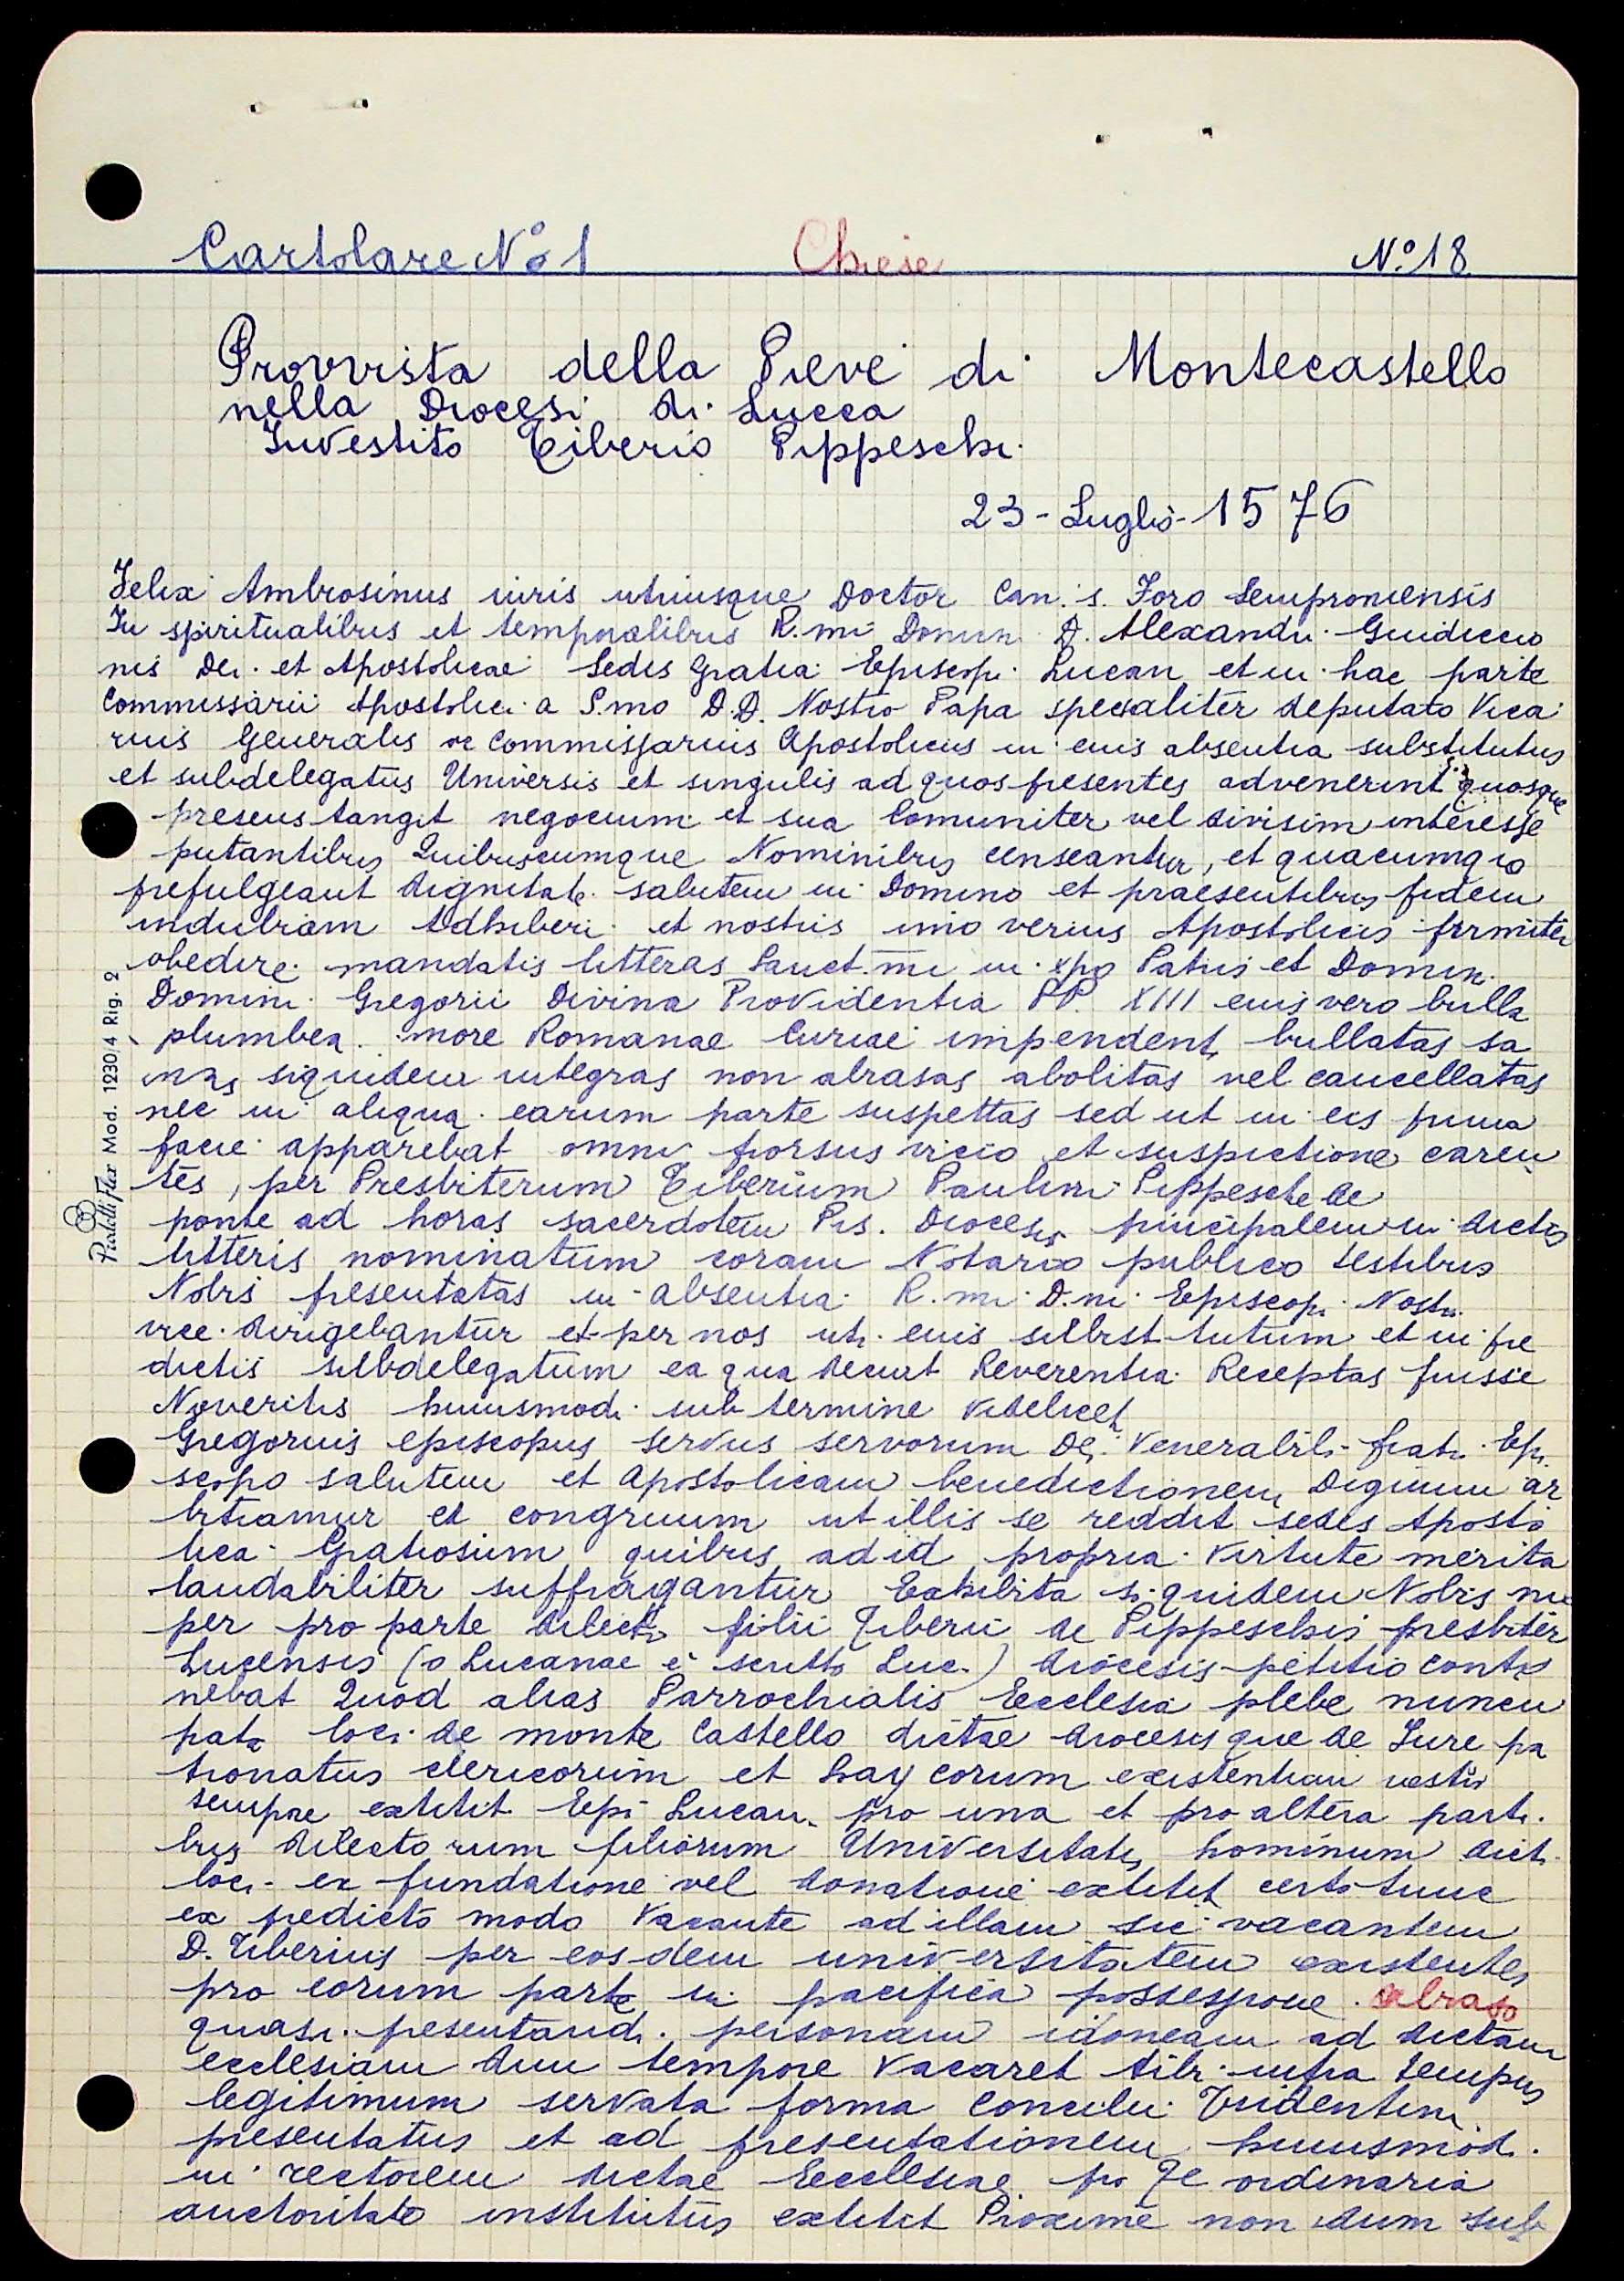 Cartolare No 1 Chiese No 18
Provvista della Pieve di Montecastello
nella Diocesi di Lucca
Investito Tiberio Pippeschi
23 - Luglio - 1576
Felix Ambrosinus iuris utriusque Doctor Can. s. Foro Sempromensis
In spiritualibus et temporalibus R.mi Domin D. Alexandri Guidiccio
nis Dei et Apostolicae Sedis gratia Episcopi Lucan et in hac parte
Commissarii Apostolici a S.mo D.D. Nostro Papa specialiter deputato Vica
rius Generalis ac Commissarius Apostolicus in eius absentia substitutus
et subdelegatus Universis et singulis ad quos presentes advenerint quosque
presens tangit negocium et sua Comuniter vel divisim interesse
putantibus Quibuscumque Nominibus censeantur, et quacumque
prefulgeant dignitate salutem in Domino et praesentibus fidem
indubiam Adhiberi et nostris imo verius Apostolicis firmiter
obedire mandatis litteras Sanct.mi in xpo Patris et Domin.
Domini Gregorii Divina Providentia PP. XIII eius vero bulla
plumbea more Romanae Curiae impendent bullatas sa
nas siquidem integras non abrasas abolitas vel cancellatas
nec in aliqua earum parte suspettas sed ut in eis prima
facie apparebat omni prorsus vicio et suspictione caren
tes, per Presbiterum Tiberium Paulini Pippeschi de
ponte ad horas sacerdotem Pis. Diocesis principalem in dictis
litteris nominatum coram Notario publico testibus
Nobis presentatas in absentia R.mi D.ni Episcopi Nostri
vice dirigebantur et per nos uti eius substitutum et in pre
dictis subdelegatum ea qua decuit Reverentia Receptas fuisse
Noveritis huiusmodi sub termine videlicet
Gregorius episcopus servus servorum Dei Venerabili fratri Epi
scopo salutem et apostolicam benedictionem Dignum ar
bitramur et congruum ut illis se reddit sedes Aposto
lica Gratiosum quibus ad id propria virtute merita
laudabiliter suffragantur Exhibita siquidem Nobis nu
per pro parte dilecti filii Tiberii de Pippeschis presbiter
Lucensis (o Lucanae è scritto Luc.) diocesis petitio conti
nebat Quod alias Parrochialis Ecclesia plebe nuncu
pata loci de monte Castello dictae diocesis que de Jure pa
tronatus clericorum et Lay corum existentium vestri
sempre extitit Epi Lucan. pro una et pro altera parti
bus dilecto rum filiorum Universitatis hominum dicti
loci ex fundatione vel donatione extitit certo tunc
ex predicto modo Vacante ad illam sic vacantem
D. Tiberius per eosdem universitatem existentes
pro eorum parte in pacifica possessione abraso
quasi presentandi personam idoneam ad dictam
ecclesiam dum tempore Vacaret tibi infra tempus
legitimum servata forma Concilii Tridentini
presentatus et ad presentationem huiusmodi
in rectorem dictae Ecclesiae pro Te ordinaria
auctoritate institutus extitit Proxime non dum sub
Pratelli Flex Mod. 11230/4 Rig. 2